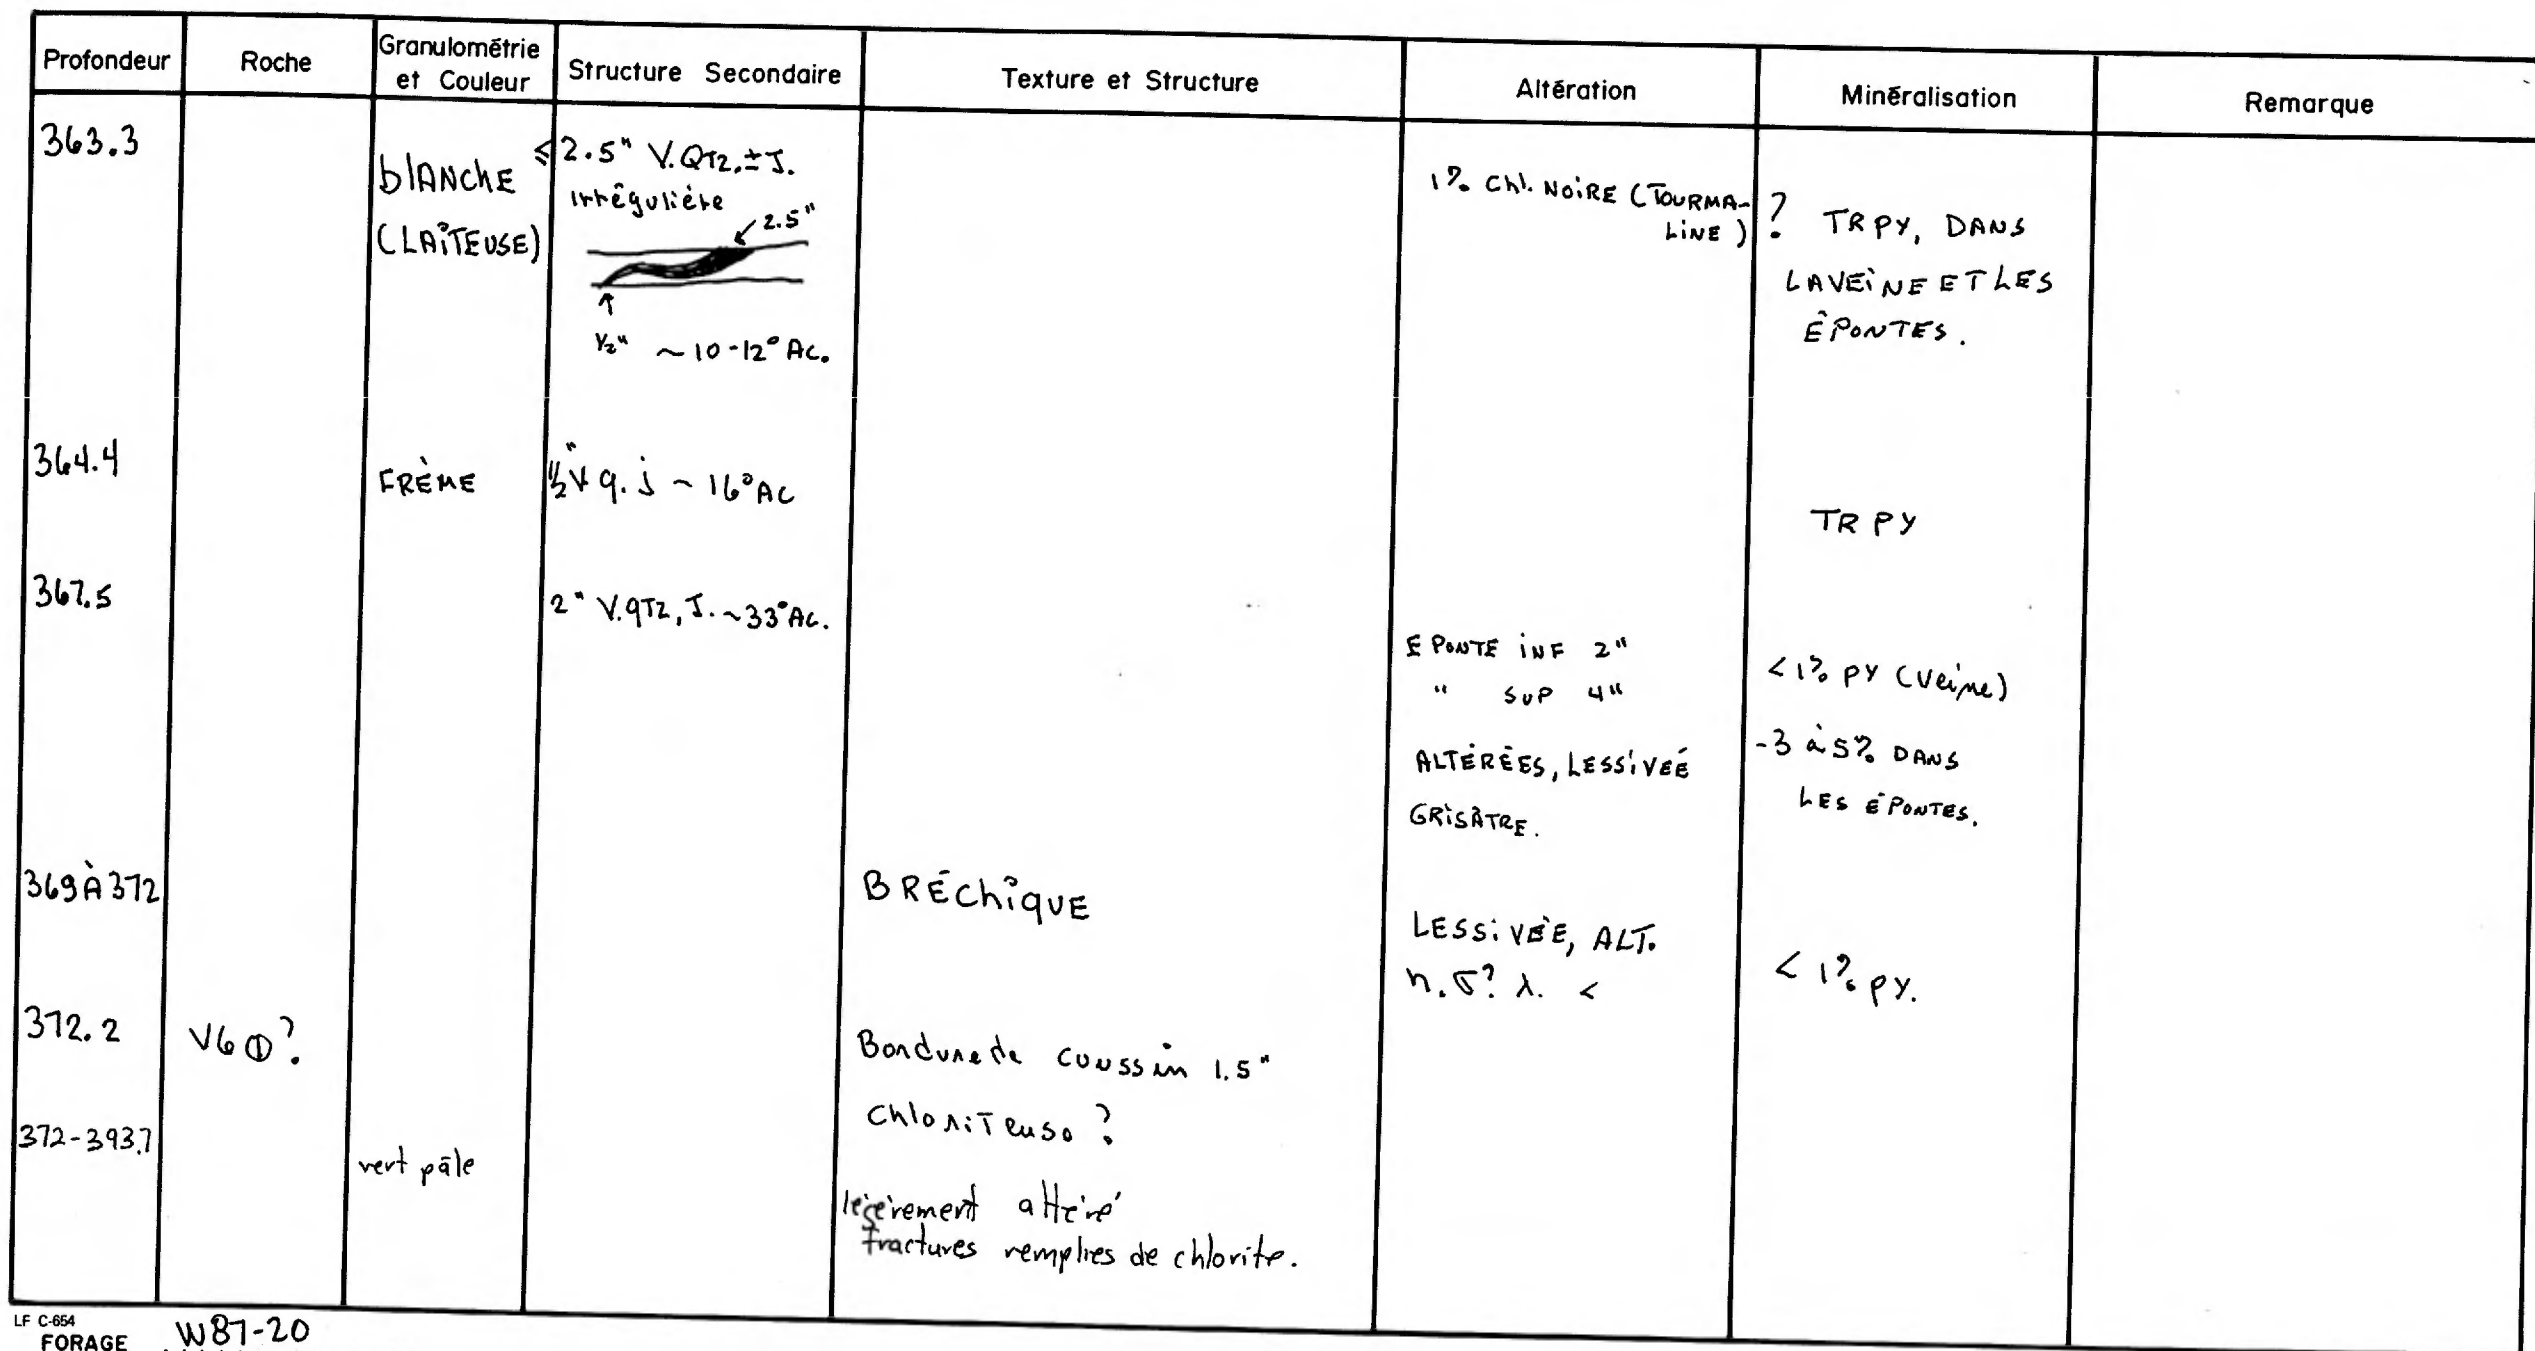 Profondeur
Roche
Granulométrie
et Couleur
Structure Secondaire
Texture et Structure
Altération
Minéralisation
Remarque
363.3
blANChE
(LAÎTEUSE)
≤ 2.5" V.QTZ.±J.
irrégulière
2.5"
1/2" ~10-12° AC.
1% Chl. NOIRE (TOURMA-
LINE) ?
TR PY, DANS
LA VEINE ET LES
ÉPONTES.
364.4
1/2" V q. j ~ 16° AC
TR PY
367.5
2" V.qTZ, J. ~33° AC.
EPONTE INF 2"
" SUP 4"
ALTÉRÉES, LESSIVÉE
GRISÂTRE.
<1% PY (Veine)
-3 à 5% DANS
LES ÉPONTES.
369 À 372
BRÉChiqUE
LESSIVÉE, ALT.
< 1% PY.
372.2
V6 ① ?
Bordure de coussin 1.5"
Chloriteuse ?
372-393.7
vert pâle
légèrement altéré
fractures remplies de chlorite.
LF C-654
FORAGE W87-20